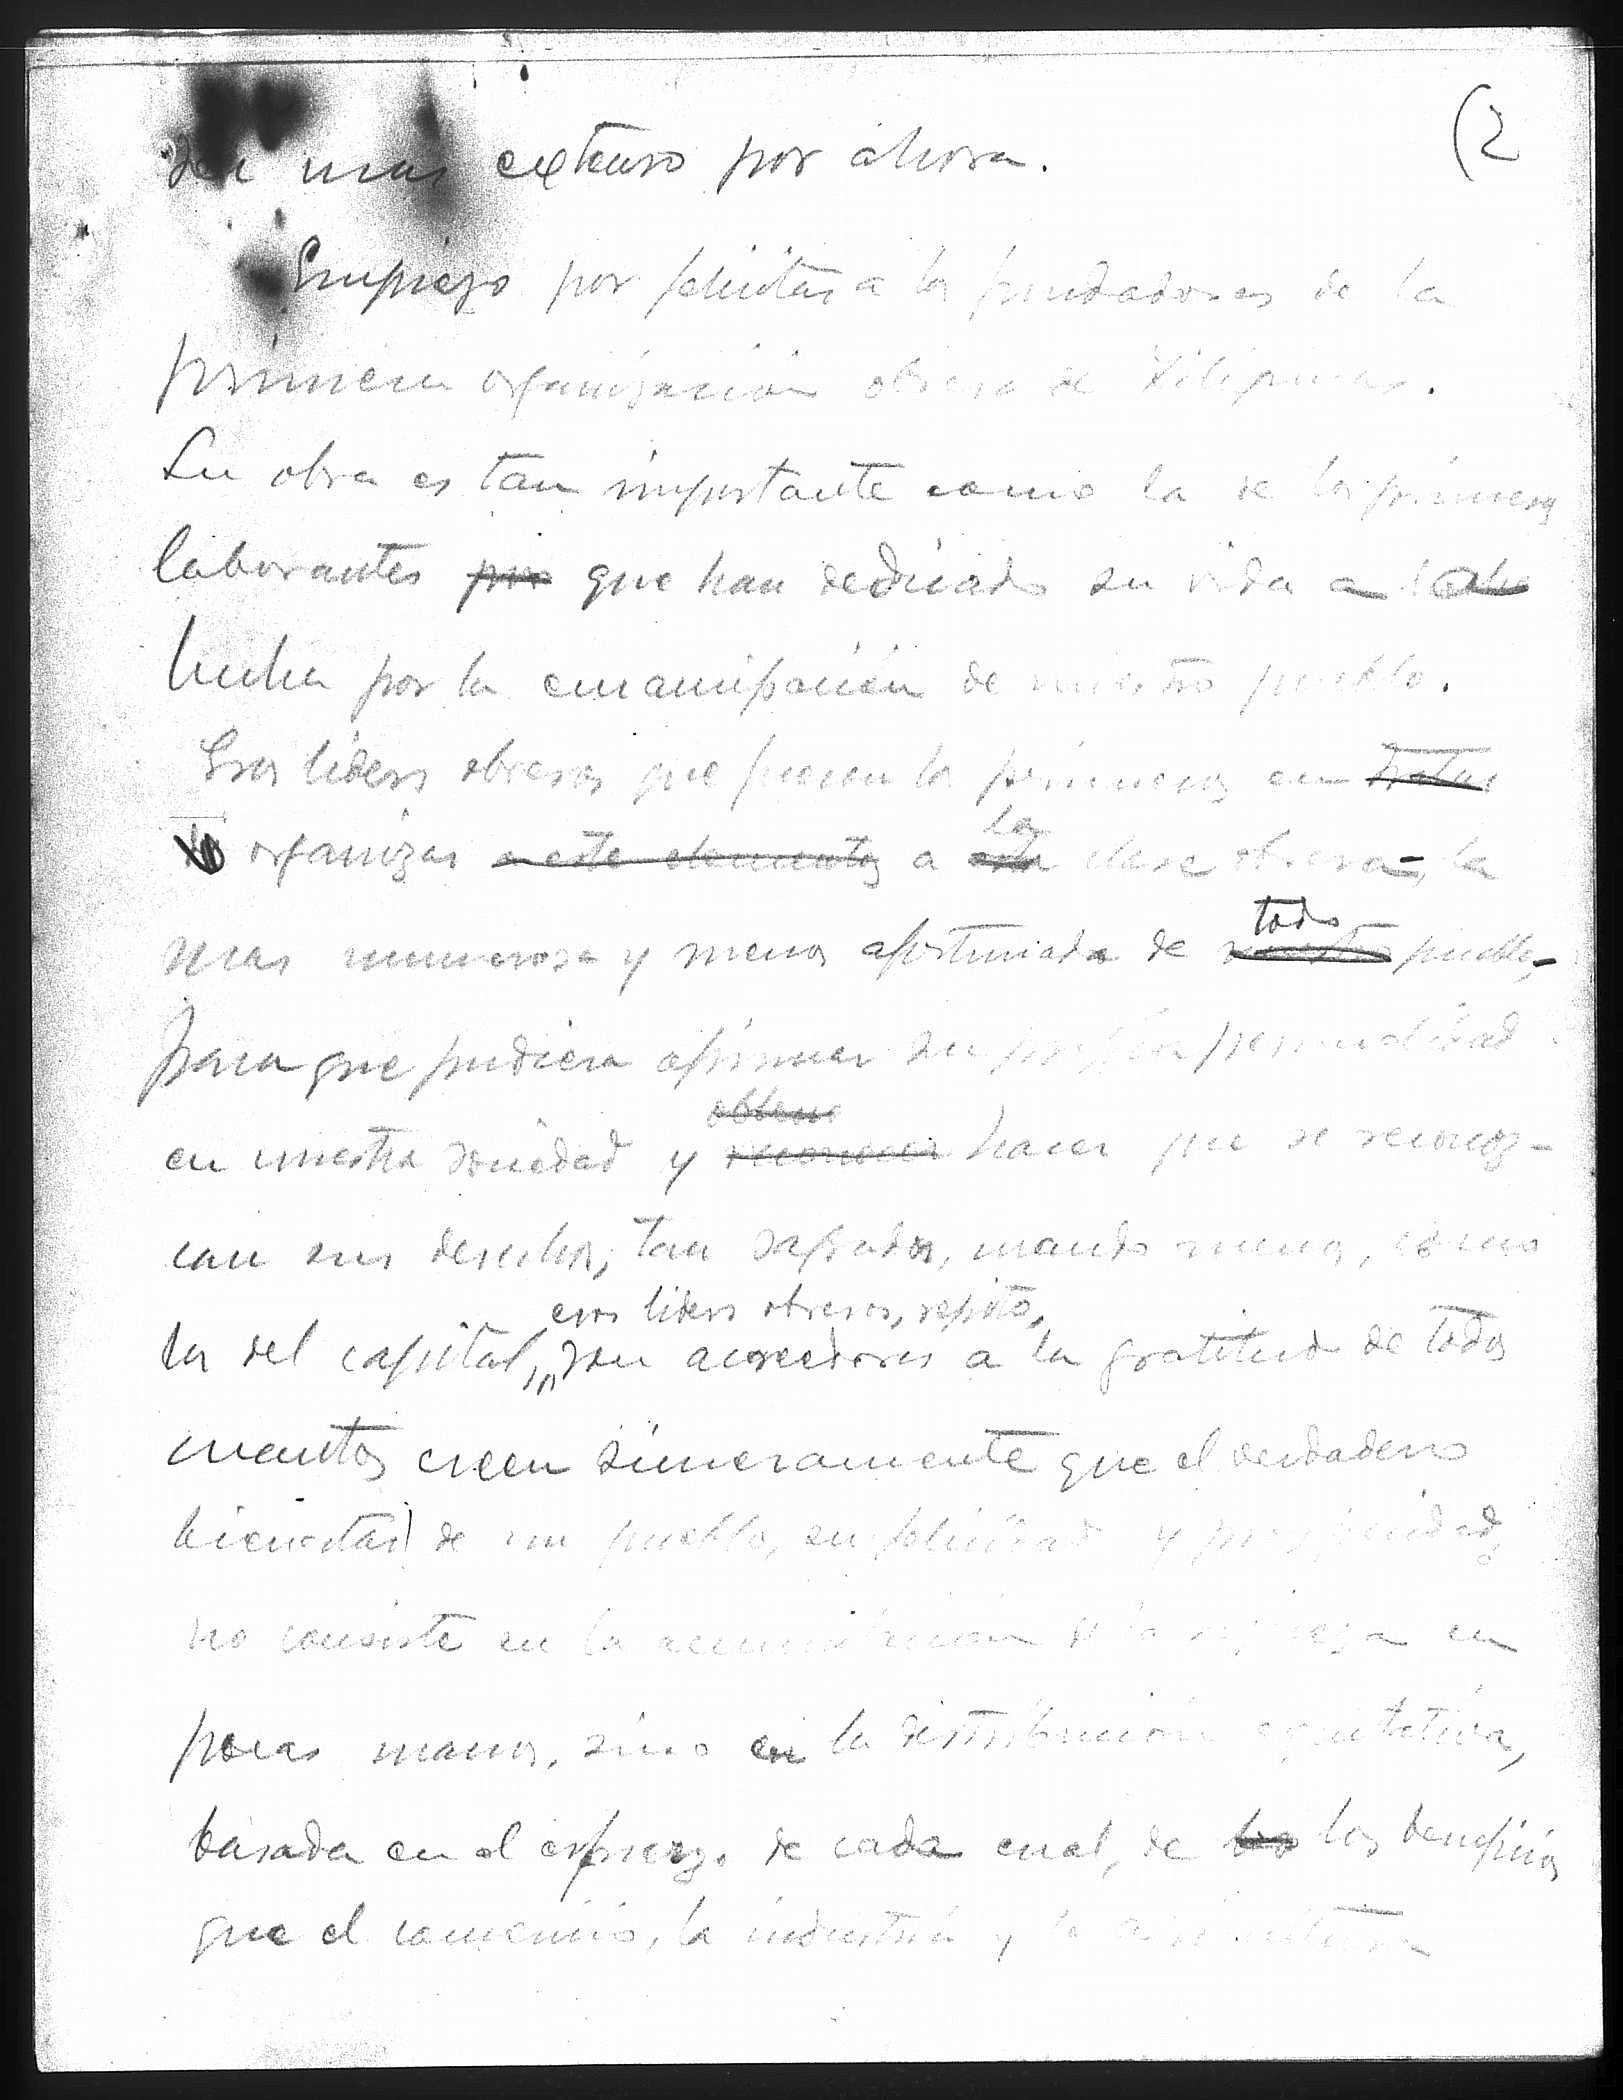 (2
ser mas extenso por ahora.
Empiezo por felicitar a los fundadores de la
primera organización obrera de Filipinas.
Su obra es tan importante como la de los primeros
laborantes que han dedicado su vida a la
lucha por la emancipación de nuestro pueblo.
Esos liders obreros que fueron los primeros en tratar
organizar a este elementos a esta clase obrera, la
la
mas numerosa y menos afortunada de nuestro pueblo,
todo
para que pudiera afirmar su propia personalidad
obtener
en nuestra sociedad y reconocer hacer que se reconoz-
can sus derechos, tan sagrados, cuando menos, como
esos liders obreros, repito,
los del capital, son acreedores a la gratitud de todos
cuantos creen sinceramente que el verdadero
bienestar de un pueblo, su felicidad y prosperidad,
no consiste en la acumulación de la riqueza en
pocas manos, sino en la distribución equitativa,
basada en el esfuerzo de cada cual, de los los beneficios
que el comercio, la industria y la agricultura